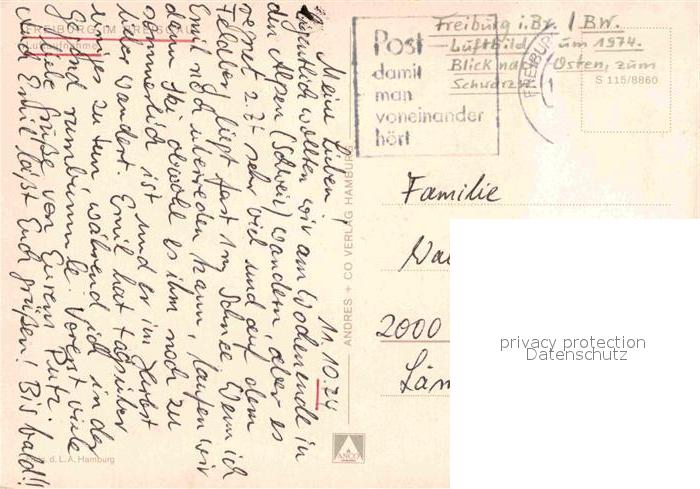 FREIBURG IM BREISGAU
Luftaufnahme
Freiburg i.Br. / BW.
Luftbild um 1974.
Blick nach Osten, zum
Schwarzw.
S 115/8860
Post
damit
man
voneinander
hört
FREIBURG
1
11.10.74
Meine Lieben,
eigentlich wollten wir am Wochenende in
den Alpen (Schweiz) wandern, aber es
regnet z. Zt sehr viel und auf dem
Feldberg liegt fast 1m Schnee. Wenn ich
Emil noch überreden kann, laufen wir
dann Ski obwohl es ihm noch zu
sommerlich ist und er im Herbst
lieber wandert. Emil hat tagsüber
einiges zu tun, während ich in der
Gegend rumbummle. Vorerst viele
liebe Grüße von Eurem Putzi
Auch Emil läßt Euch grüßen! Bis bald!!
Familie
2000
ANDRES + CO VERLAG HAMBURG
ANCO
d. L. A. Hamburg
privacy protection
Datenschutz